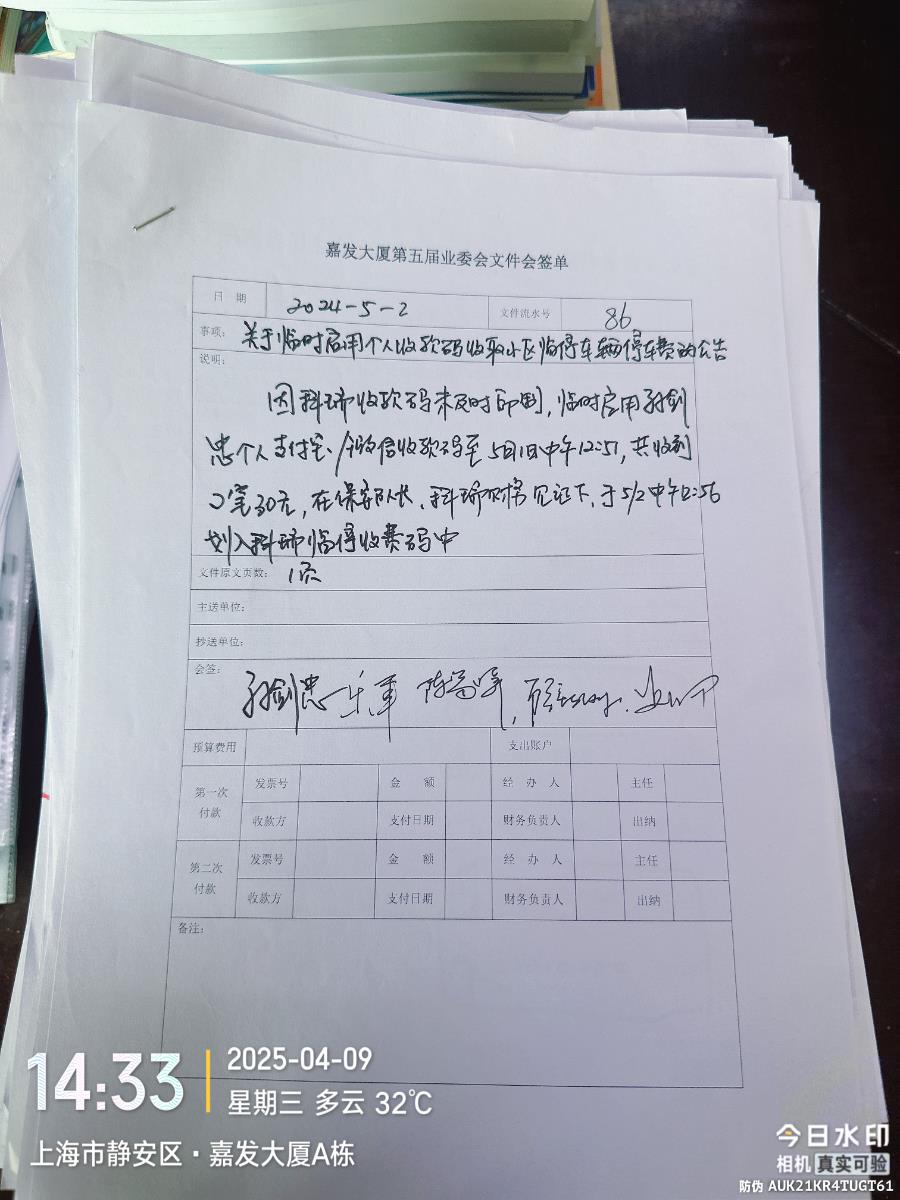 嘉发大厦第五届业委会文件会签单
日 期 2024-5-2 文件流水号 86
事项: 关于临时启用个人收款码收取小区临停车辆停车费的公告
说明:
因科瑞收款码未及时印制,临时启用孙剑
忠个人支付宝、微信收款码至5月1日中午12:51,共收到
2笔30元,在保安队长、科瑞 见证下,于5/2中午12:56
划入科瑞临停收费码中
文件原文页数: 1页
主送单位:
抄送单位:
会签: 孙剑忠 乐军
预算费用 支出账户
第一次付款 发票号 金 额 经 办 人 主任
收款方 支付日期 财务负责人 出纳
第二次付款 发票号 金 额 经 办 人 主任
收款方 支付日期 财务负责人 出纳
备注:
14:33
2025-04-09
星期三 多云 32℃
上海市静安区·嘉发大厦A栋
今日水印
相机 真实可验
防伪 AUK21KR4TUGT61